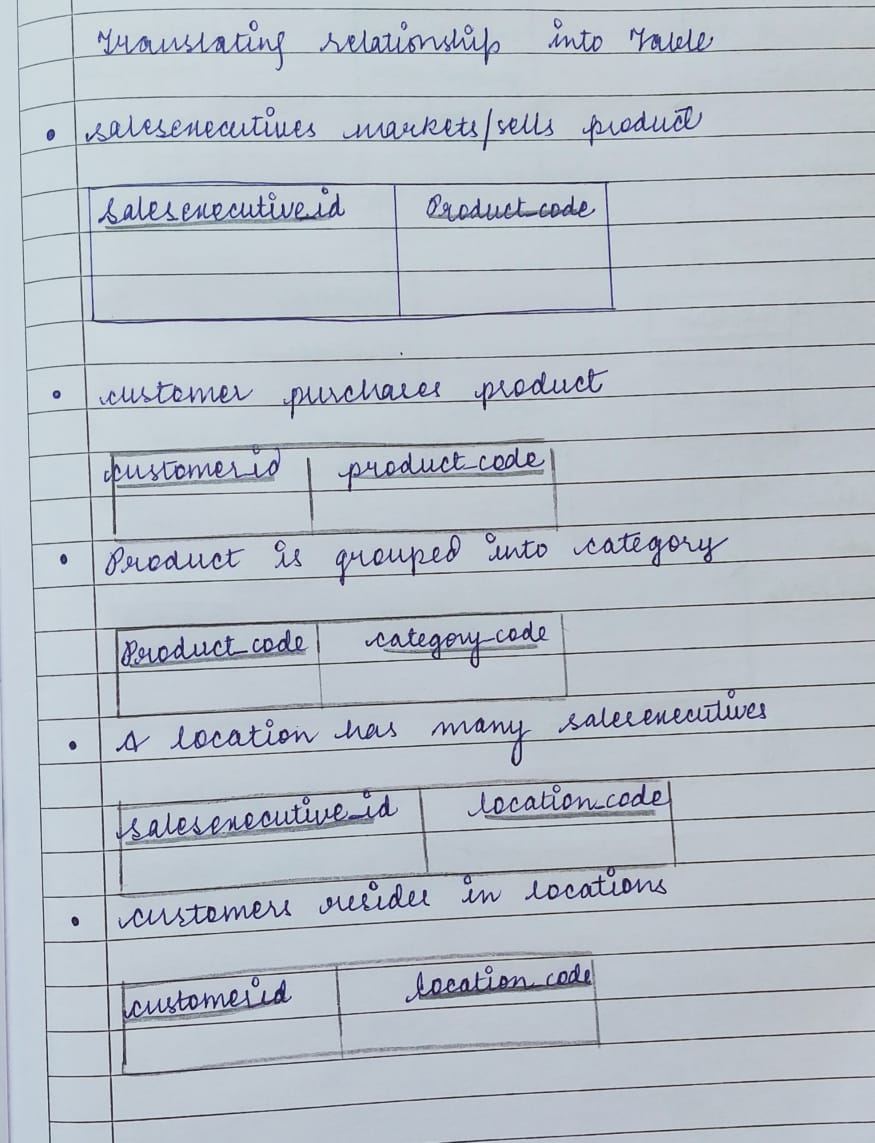 Translating relationship into Table
• salesexecutives markets/sells product
salesexecutive_id Product_code
• customer purchases product
customer_id product_code
• Product is grouped into category
Product_code category_code
• A location has many salesexecutives
salesexecutive_id location_code
• customers resides in locations
customer_id location_code